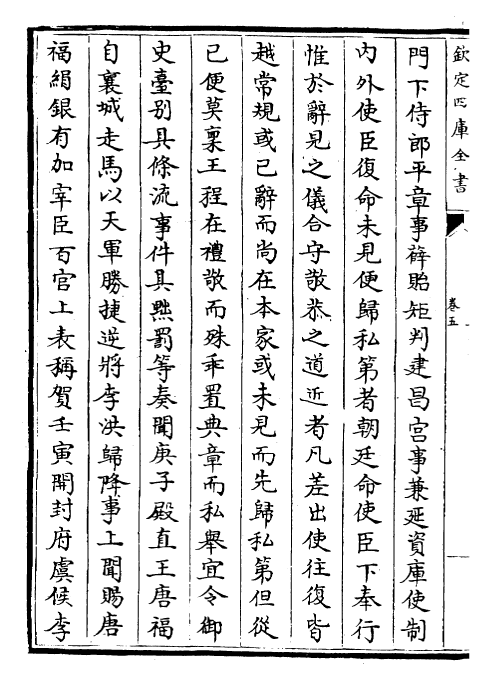 欽定四庫全書
卷五
門下侍郎平章事薛貽矩判建昌宮事兼延資庫使制
内外使臣復命未見便歸私第者朝廷命使臣下奉行
惟於辭見之儀合守敬恭之道近者凡差出使往復皆
越常規或已辭而尚在本家或未見而先歸私第但從
已便莫稟王程在禮敬而殊乖置典章而私舉宜令御
史臺别具條流事件具黜罰等奏聞庚子殿直王唐福
自襄城走馬以天軍勝捷逆將李洪歸降事上聞賜唐
福絹銀有加宰臣百官上表稱賀壬寅開封府虞候李